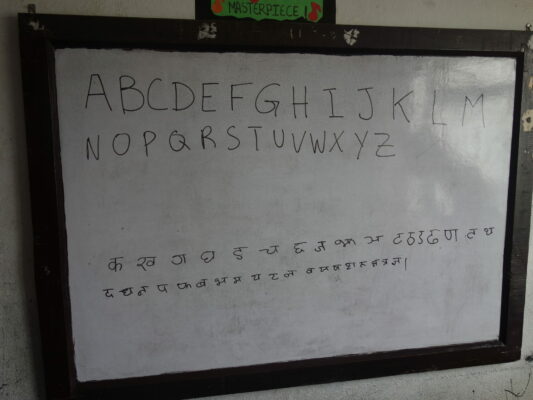 MASTERPIECE!
ABCDEFGHIJKLM
NOPQRSTUVWXYZ
क ख ग घ ङ च छ ज झ ञ ट ठ ड ढ ण त थ
द ध न प फ ब भ म य र ल व श ष स ह क्ष त्र ज्ञ।